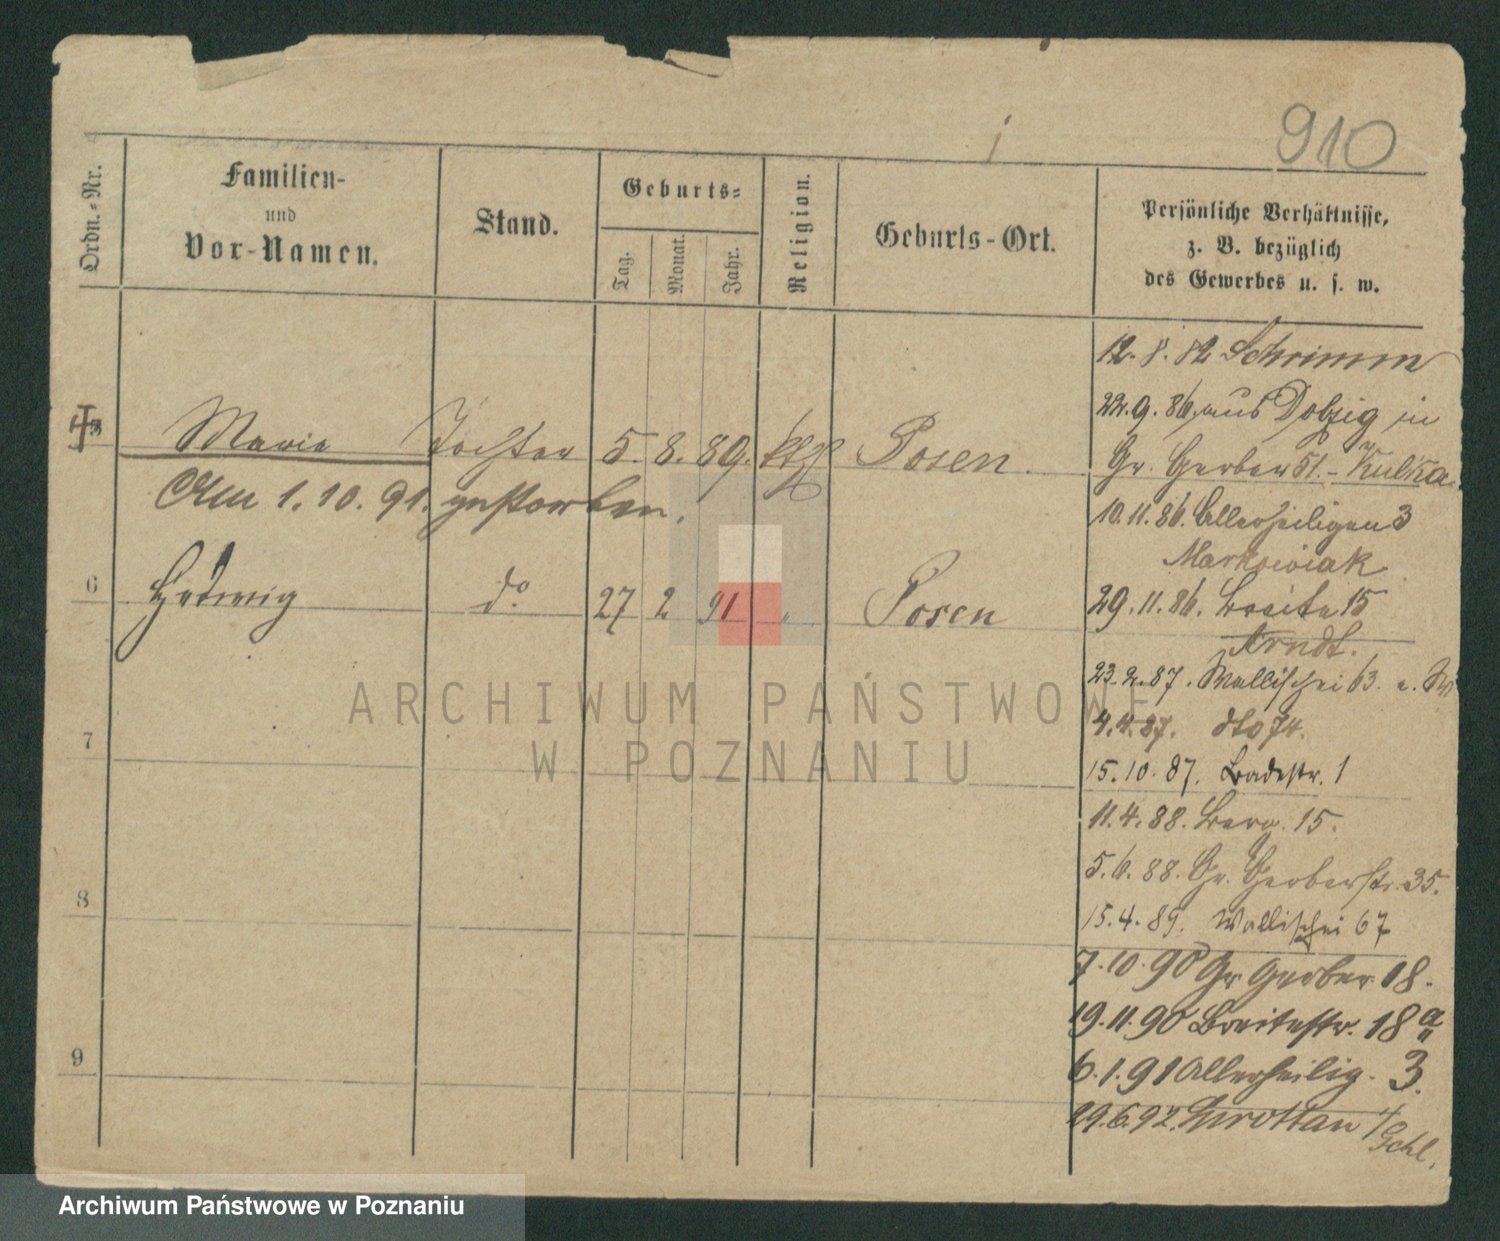 910
Ordn.-Nr.
Familien-
und
Vor-Namen.
Stand.
Geburts-
Tag.
Monat.
Jahr.
Religion.
Geburts-Ort.
Persönliche Verhältnisse,
z. B. bezüglich
des Gewerbes u. s. w.
12. 8. 82 Schrimm
22. 9. 86. aus Dolzig in
Gr. Gerber 51. - Kulka.
Maria Tochter 5. 8. 89. kth Posen.
Am 1. 10. 91. gestorben.
10. 11. 86. Allerheiligen 3
Markowiak
6 Hedwig do 27 2 91 " Posen
29. 11. 86. Breite 15
Arndt.
23. 2. 87. Wallischei 63.
4. 4. 87. dto 74.
7
15. 10. 87. Badestr. 1
11. 4. 88. Berg. 15.
5. 6. 88. Gr. Gerberstr. 35.
8
15. 4. 89. Wallischei 67
7. 10. 90 Gr Gerber 18.
19. 11. 90 Breitestr. 18 a
9
6. 1. 91 Allerheilig. 3.
29. 6. 92. Grottau
Schl.
ARCHIWUM PAŃSTWOWE
W POZNANIU
Archiwum Państwowe w Poznaniu